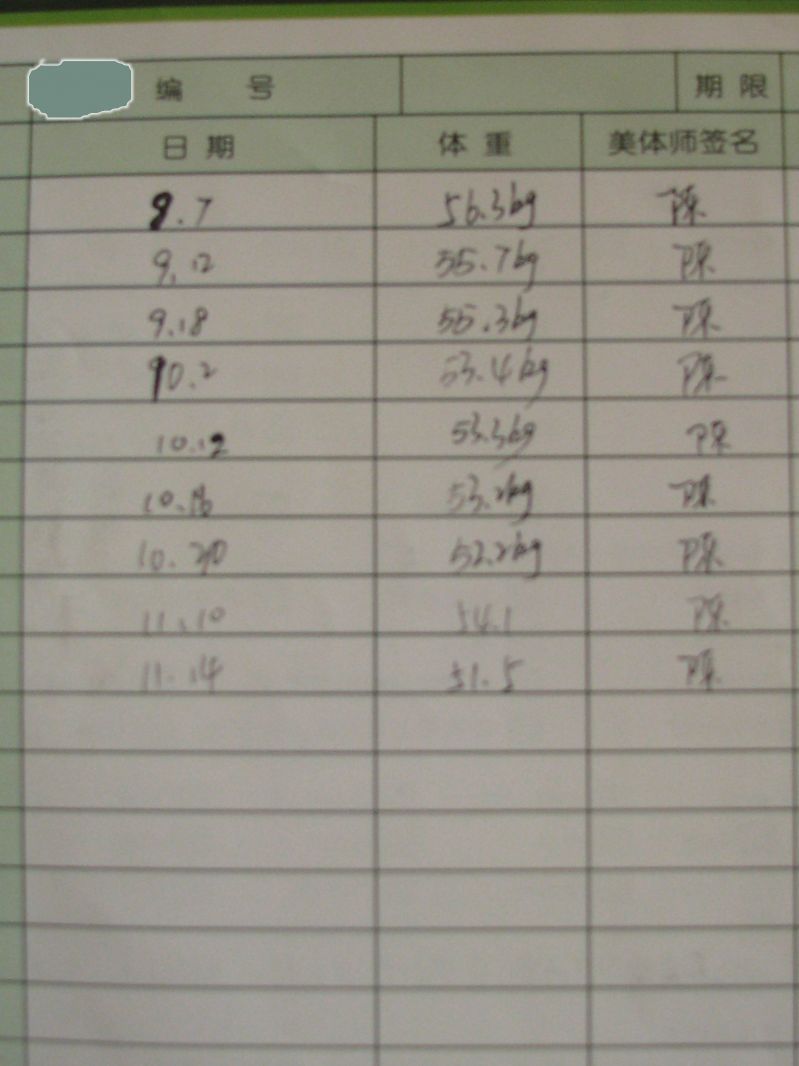 编 号 期 限
日 期 体 重 美体师签名
9.7 56.3kg 陈
9.12 55.7kg 陈
9.18 55.3kg 陈
10.2 53.4kg 陈
10.12 53.3kg 陈
10.16 53.2kg 陈
10.20 52.2kg 陈
11.10 54.1 陈
11.14 51.5 陈